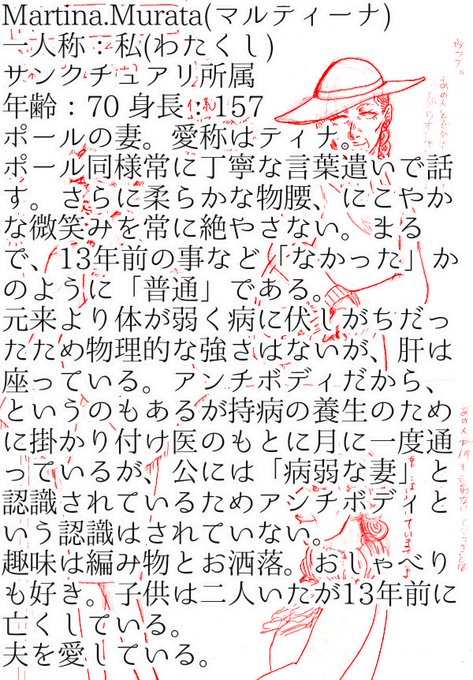 Martina.Murata(マルティーナ)
一人称：私(わたくし)
サンクチュアリ所属
年齢：70 身長：157
ポールの妻。愛称はティナ。
ポール同様常に丁寧な言葉遣いで話
す。さらに柔らかな物腰、にこやか
な微笑みを常に絶やさない。まる
で、13年前の事など「なかった」か
のように「普通」である。
元来より体が弱く病に伏しがちだっ
たため物理的な強さはないが、肝は
座っている。アンチボディだから、
というのもあるが持病の養生のため
に掛かり付け医のもとに月に一度通
っているが、公には「病弱な妻」と
認識されているためアンチボディと
いう認識はされていない。
趣味は編み物とお洒落。おしゃべり
も好き。子供は二人いたが13年前に
亡くしている。
夫を愛している。